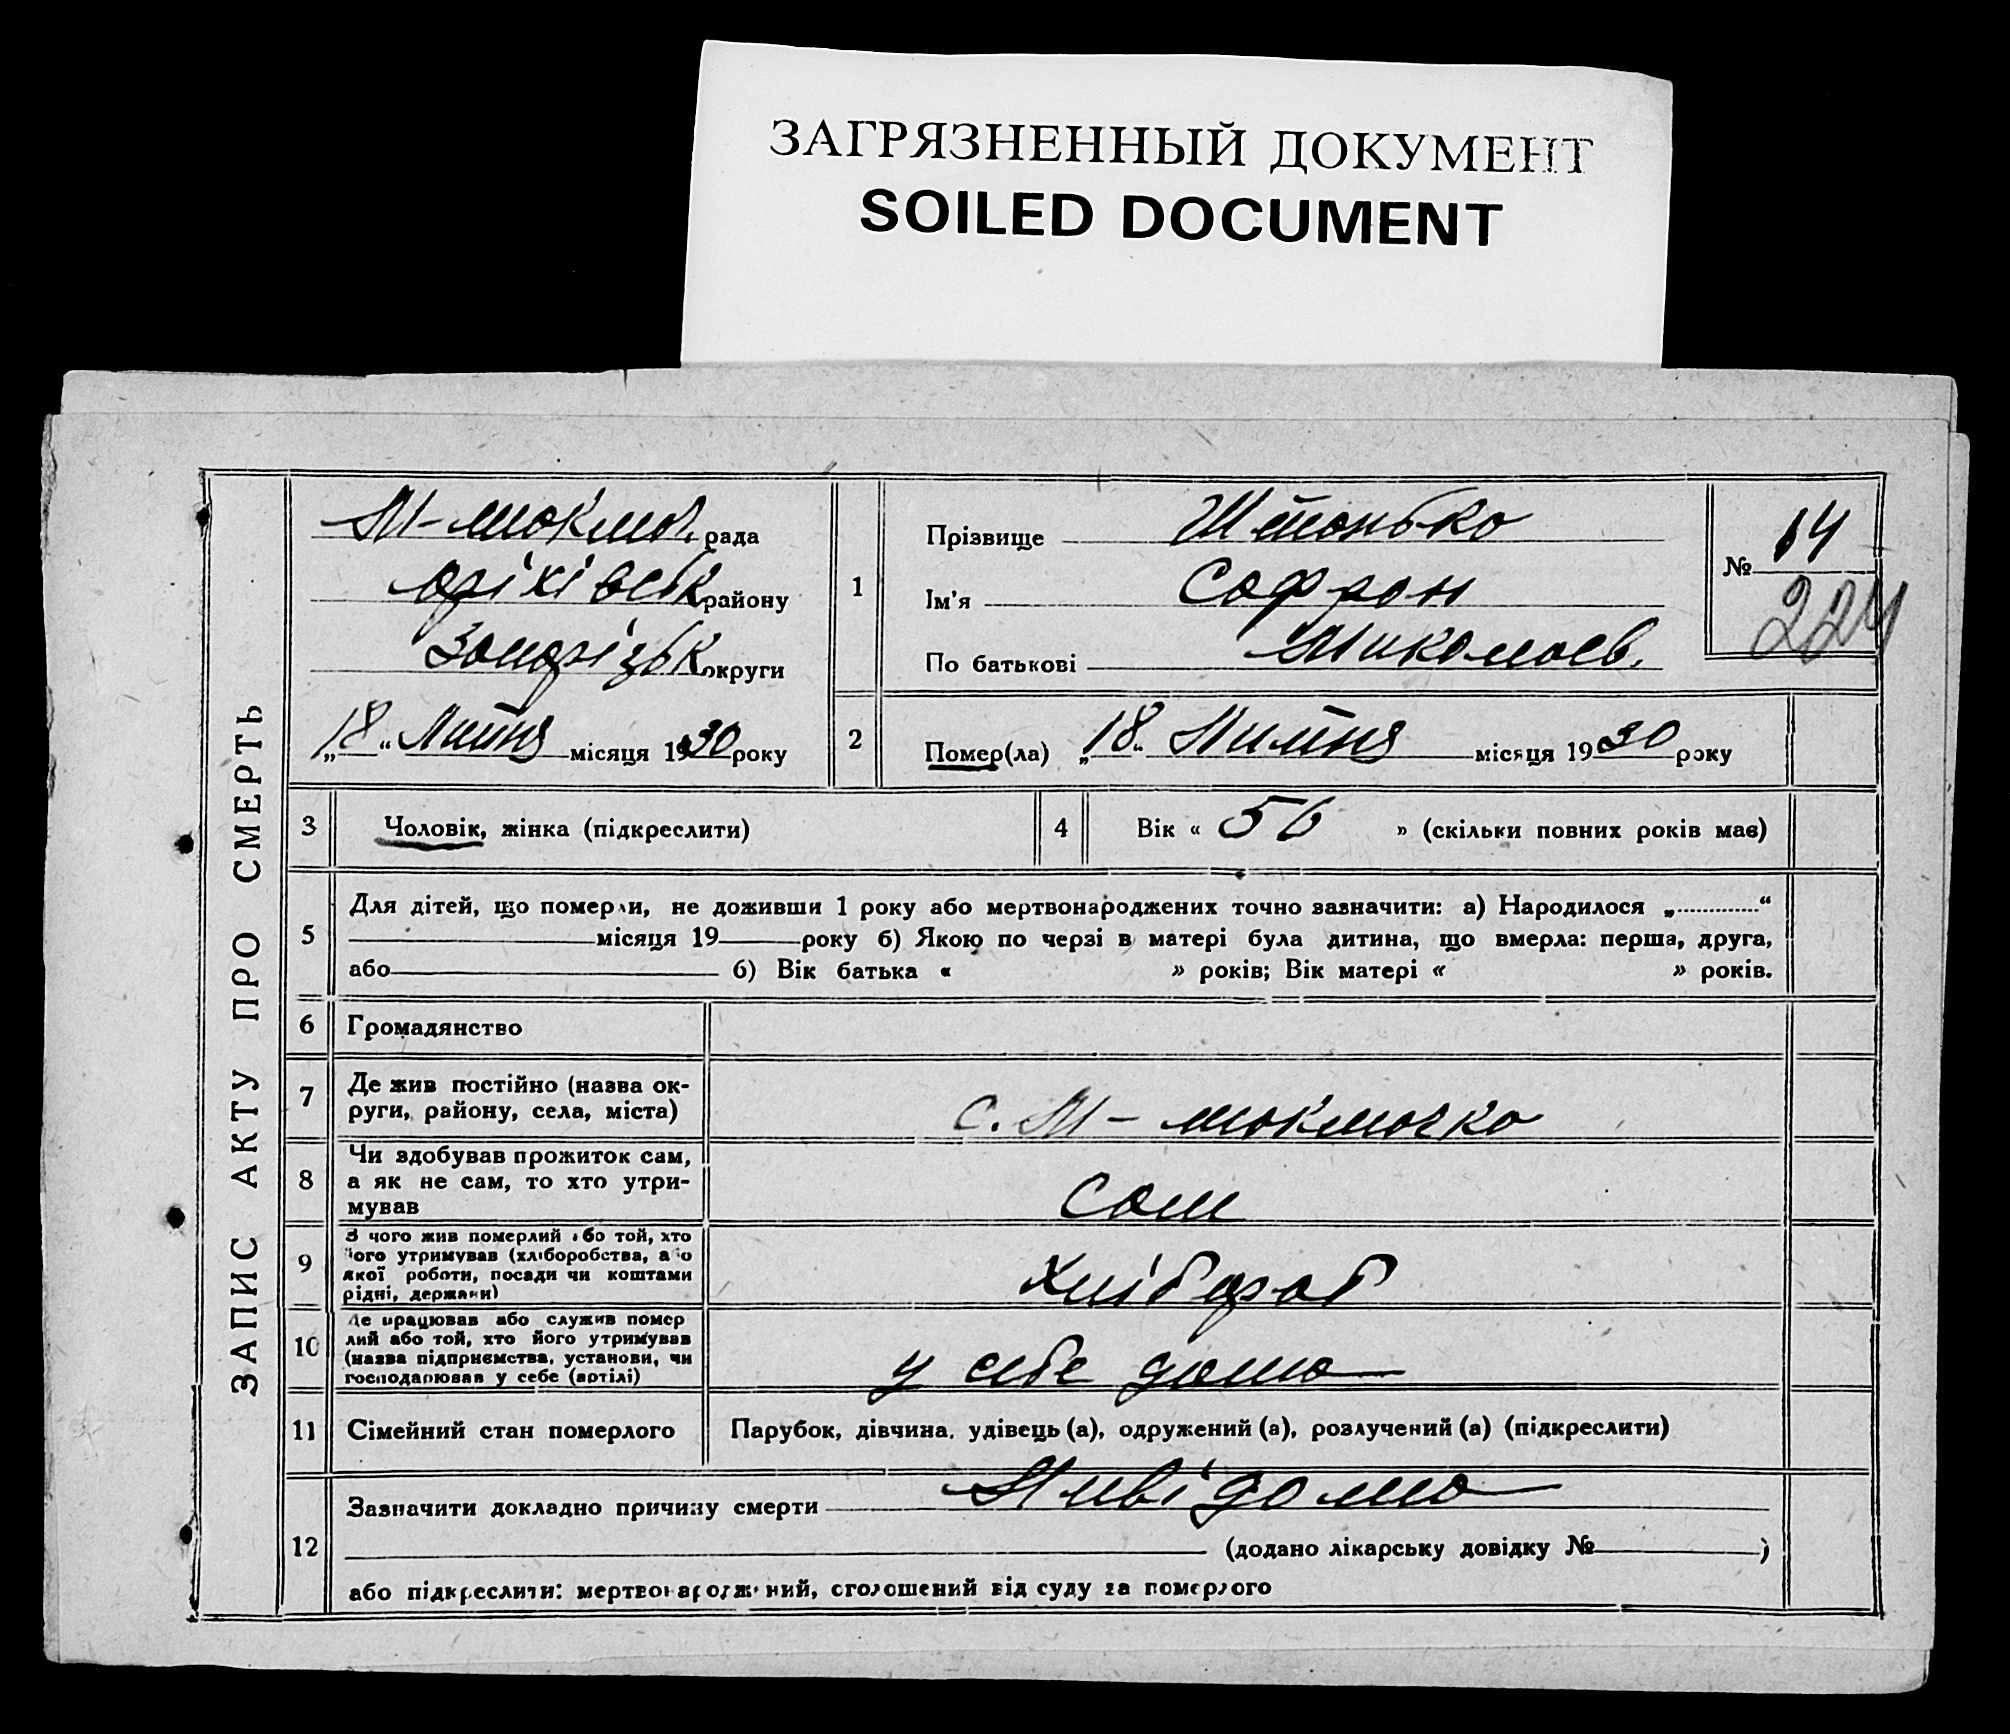 ЗАГРЯЗНЕННЫЙ ДОКУМЕНТ
SOILED DOCUMENT
ЗАПИС АКТУ ПРО СМЕРТЬ
М-токмач. рада
оріхівськ району
Запорізьк округи
„18“ Липня місяця 1930 року
1
Прізвище Штонько
Ім'я Софрон
По батькові Миколаєв.
№ 14
224
2 Помер(ла) „18“ Липня місяця 1930 року
3 Чоловік, жінка (підкреслити)
4 Вік « 56 » (скільки повних років має)
5 Для дітей, що померли, не доживши 1 року або мертвонароджених точно зазначити: а) Народилося „ “
місяця 19 року б) Якою по черзі в матері була дитина, що вмерла: перша, друга,
або б) Вік батька « » років; Вік матері « » років.
6 Громадянство
7 Де жив постійно (назва ок-
руги, району, села, міста)
с. М-токмачка
8 Чи здобував прожиток сам,
а як не сам, то хто утри-
мував
сам
9 З чого жив померлий або той, хто
його утримував (хліборобства, або
якої роботи, посади чи коштами
рідні, держави)
хлібороб
10 Де працював або служив помер
лий або той, хто його утримував
(назва підприємства, установи, чи
господарював у себе (артілі)
у себе дома
11 Сімейний стан померлого
Парубок, дівчина, удівець (а), одружений (а), розлучений (а) (підкреслити)
12 Зазначити докладно причину смерти Нивідома
(додано лікарську довідку № )
або підкреслити: мертвонароджений, оголошений від суду за померлого